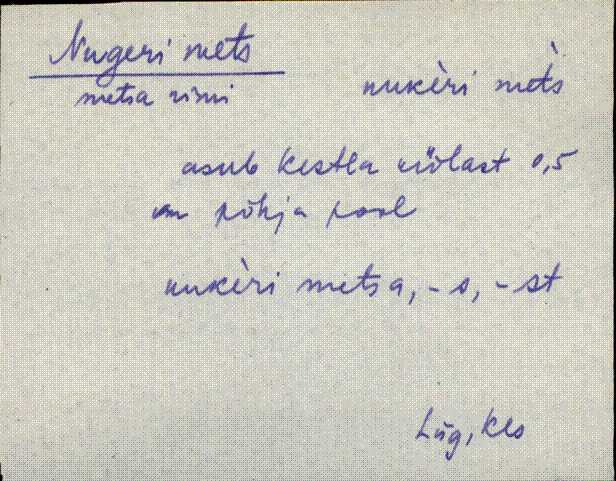 Nugeri mets
metsa nimi nukèri mèts
asub Kestla külast 0,5
km põhja pool
nukèri metsa, -s, -st
Lüg, Kes